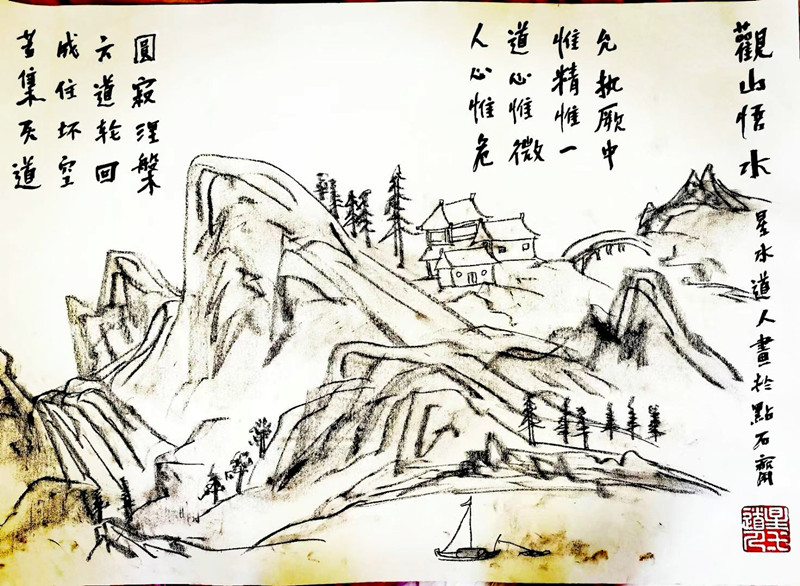 觀山悟水
星水道人畫於點石齋
允执厥中
惟精惟一
道心惟微
人心惟危
圓寂涅槃
六道轮回
成住坏空
苦集灭道